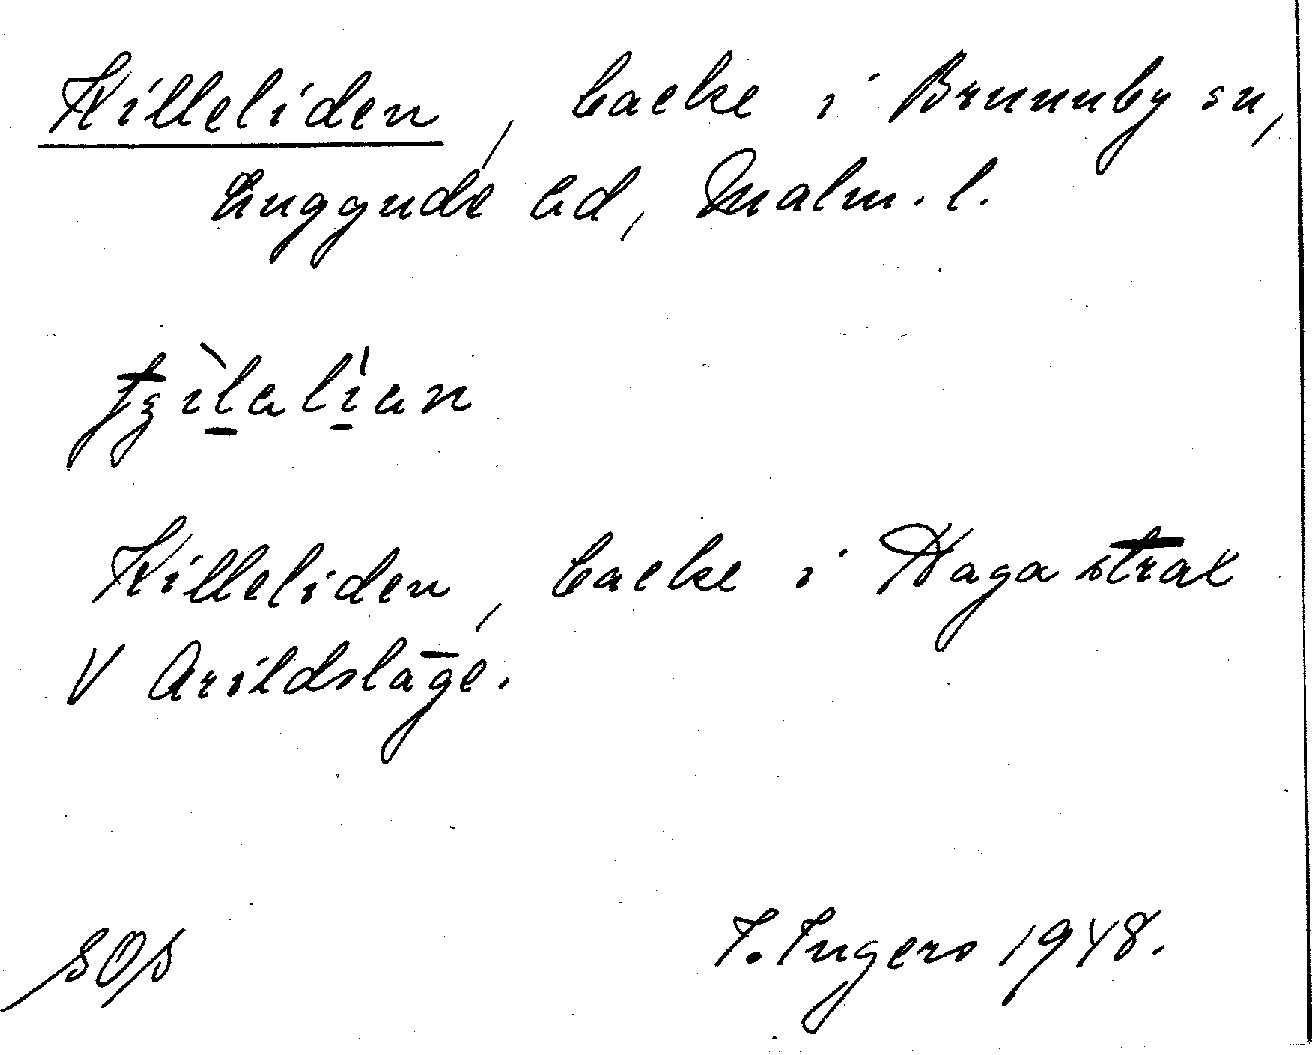 Killeliden, backe i Brunnby sn,
Luggude hd, Malm. l.
Killeliden, backe i Haga strax
V Arildsläge.
SOS I. Ingers 1948.